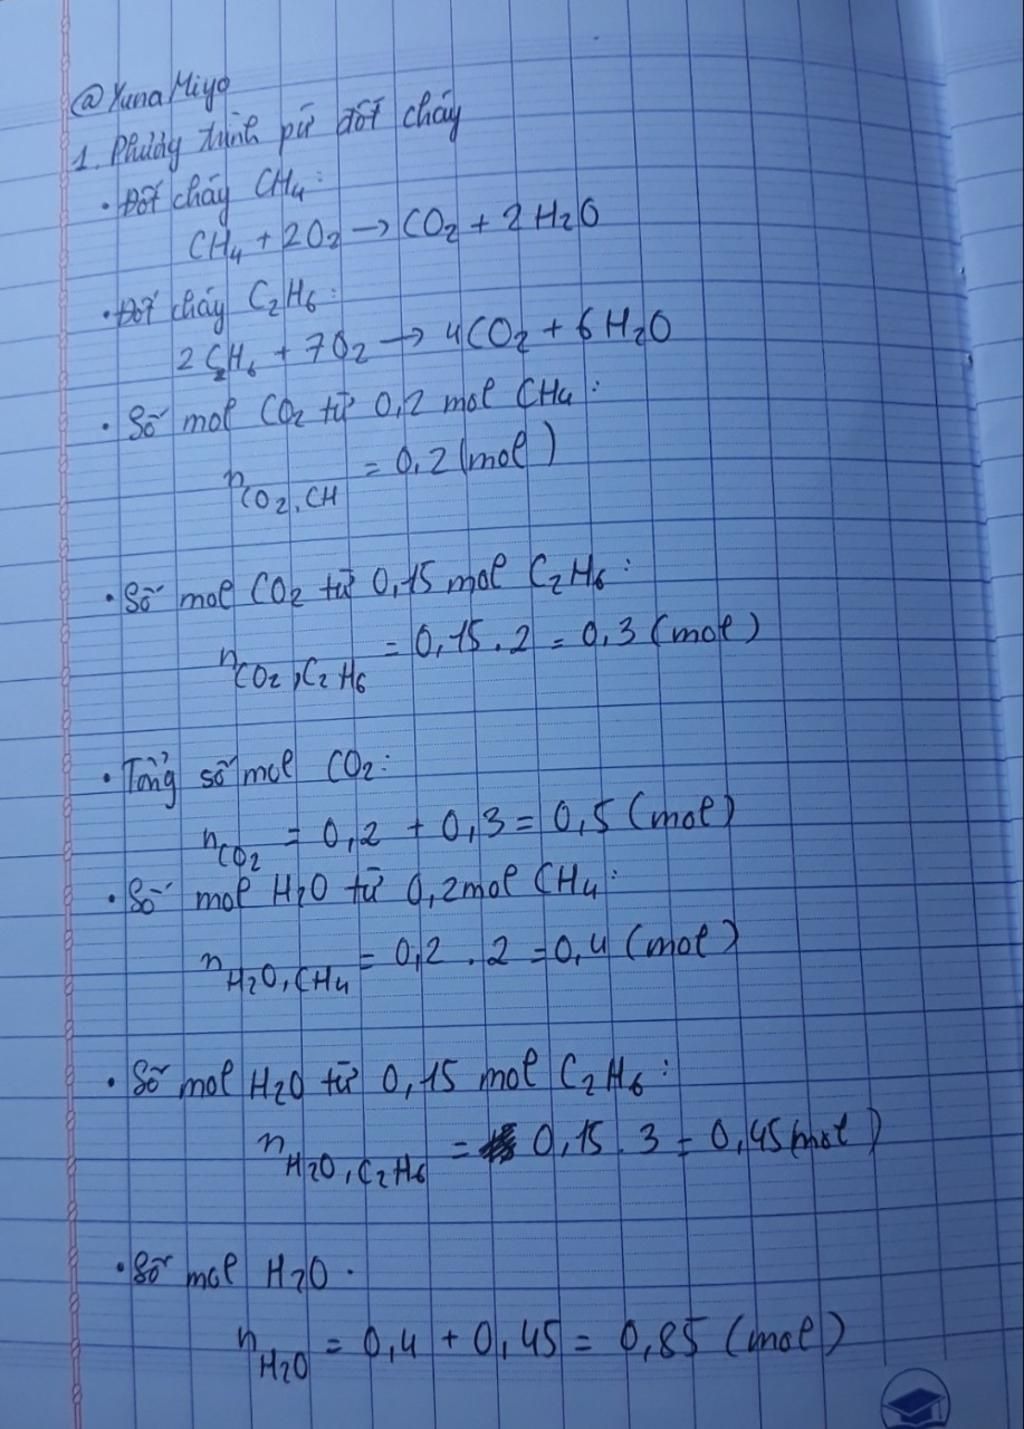 @YunaMiyo
1. Phương trình pứ đốt cháy
• Đốt cháy CH₄:
CH₄ + 2O₂ → CO₂ + 2H₂O
• Đốt cháy C₂H₆:
2C₂H₆ + 7O₂ → 4CO₂ + 6H₂O
• Số mol CO₂ từ 0,2 mol CH₄:
n CO₂, CH = 0,2 (mol)
• Số mol CO₂ từ 0,15 mol C₂H₆:
n CO₂, C₂H₆ = 0,15 . 2 = 0,3 (mol)
• Tổng số mol CO₂:
n CO₂ = 0,2 + 0,3 = 0,5 (mol)
• Số mol H₂O từ 0,2 mol CH₄:
n H₂O, CH₄ = 0,2 . 2 = 0,4 (mol)
• Số mol H₂O từ 0,15 mol C₂H₆:
n H₂O, C₂H₆ = 0,15 . 3 = 0,45 (mol)
• Số mol H₂O.
n H₂O = 0,4 + 0,45 = 0,85 (mol)